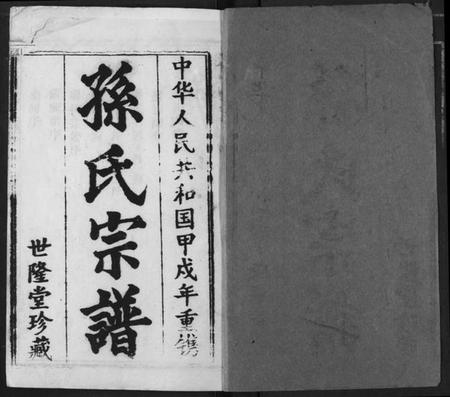 中华人民共和国甲戍年重镌
孫氏宗譜
世隆堂珍藏